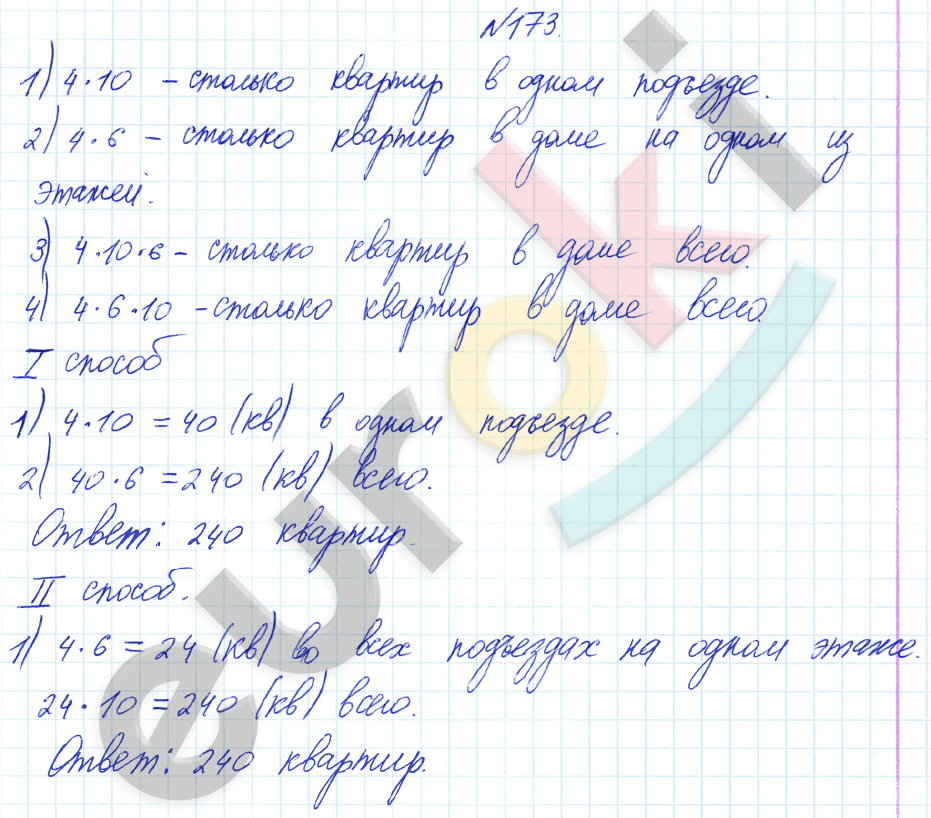 №173.
1) 4·10 – столько квартир в одном подъезде.
2) 4·6 – столько квартир в доме на одном из
этажей.
3) 4·10·6 – столько квартир в доме всего.
4) 4·6·10 – столько квартир в доме всего.
I способ
1) 4·10 = 40 (кв) в одном подъезде.
2) 40·6 = 240 (кв) всего.
Ответ: 240 квартир.
II способ.
1) 4·6 = 24 (кв) во всех подъездах на одном этаже.
24·10 = 240 (кв) всего.
Ответ: 240 квартир.
euroki